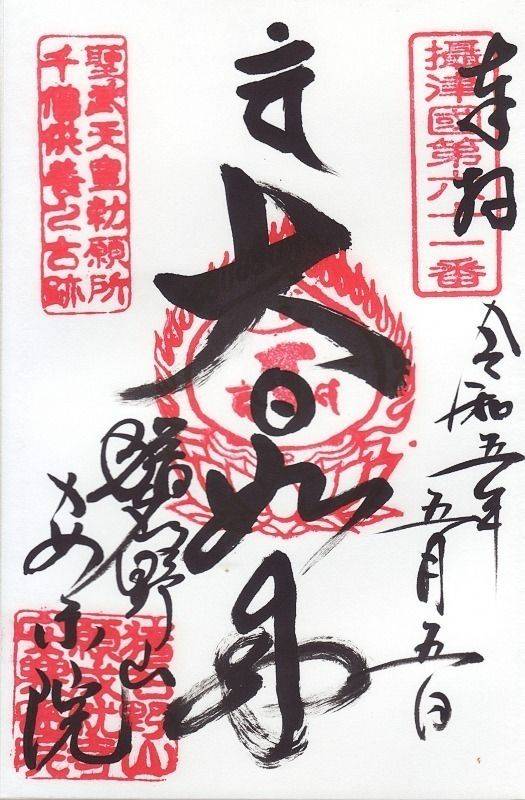 攝津國第六十一番
奉拝
令和五年
五月五日
大日如来
聖武天皇勅願所
千僧供養之古跡
猪名野山
安楽院